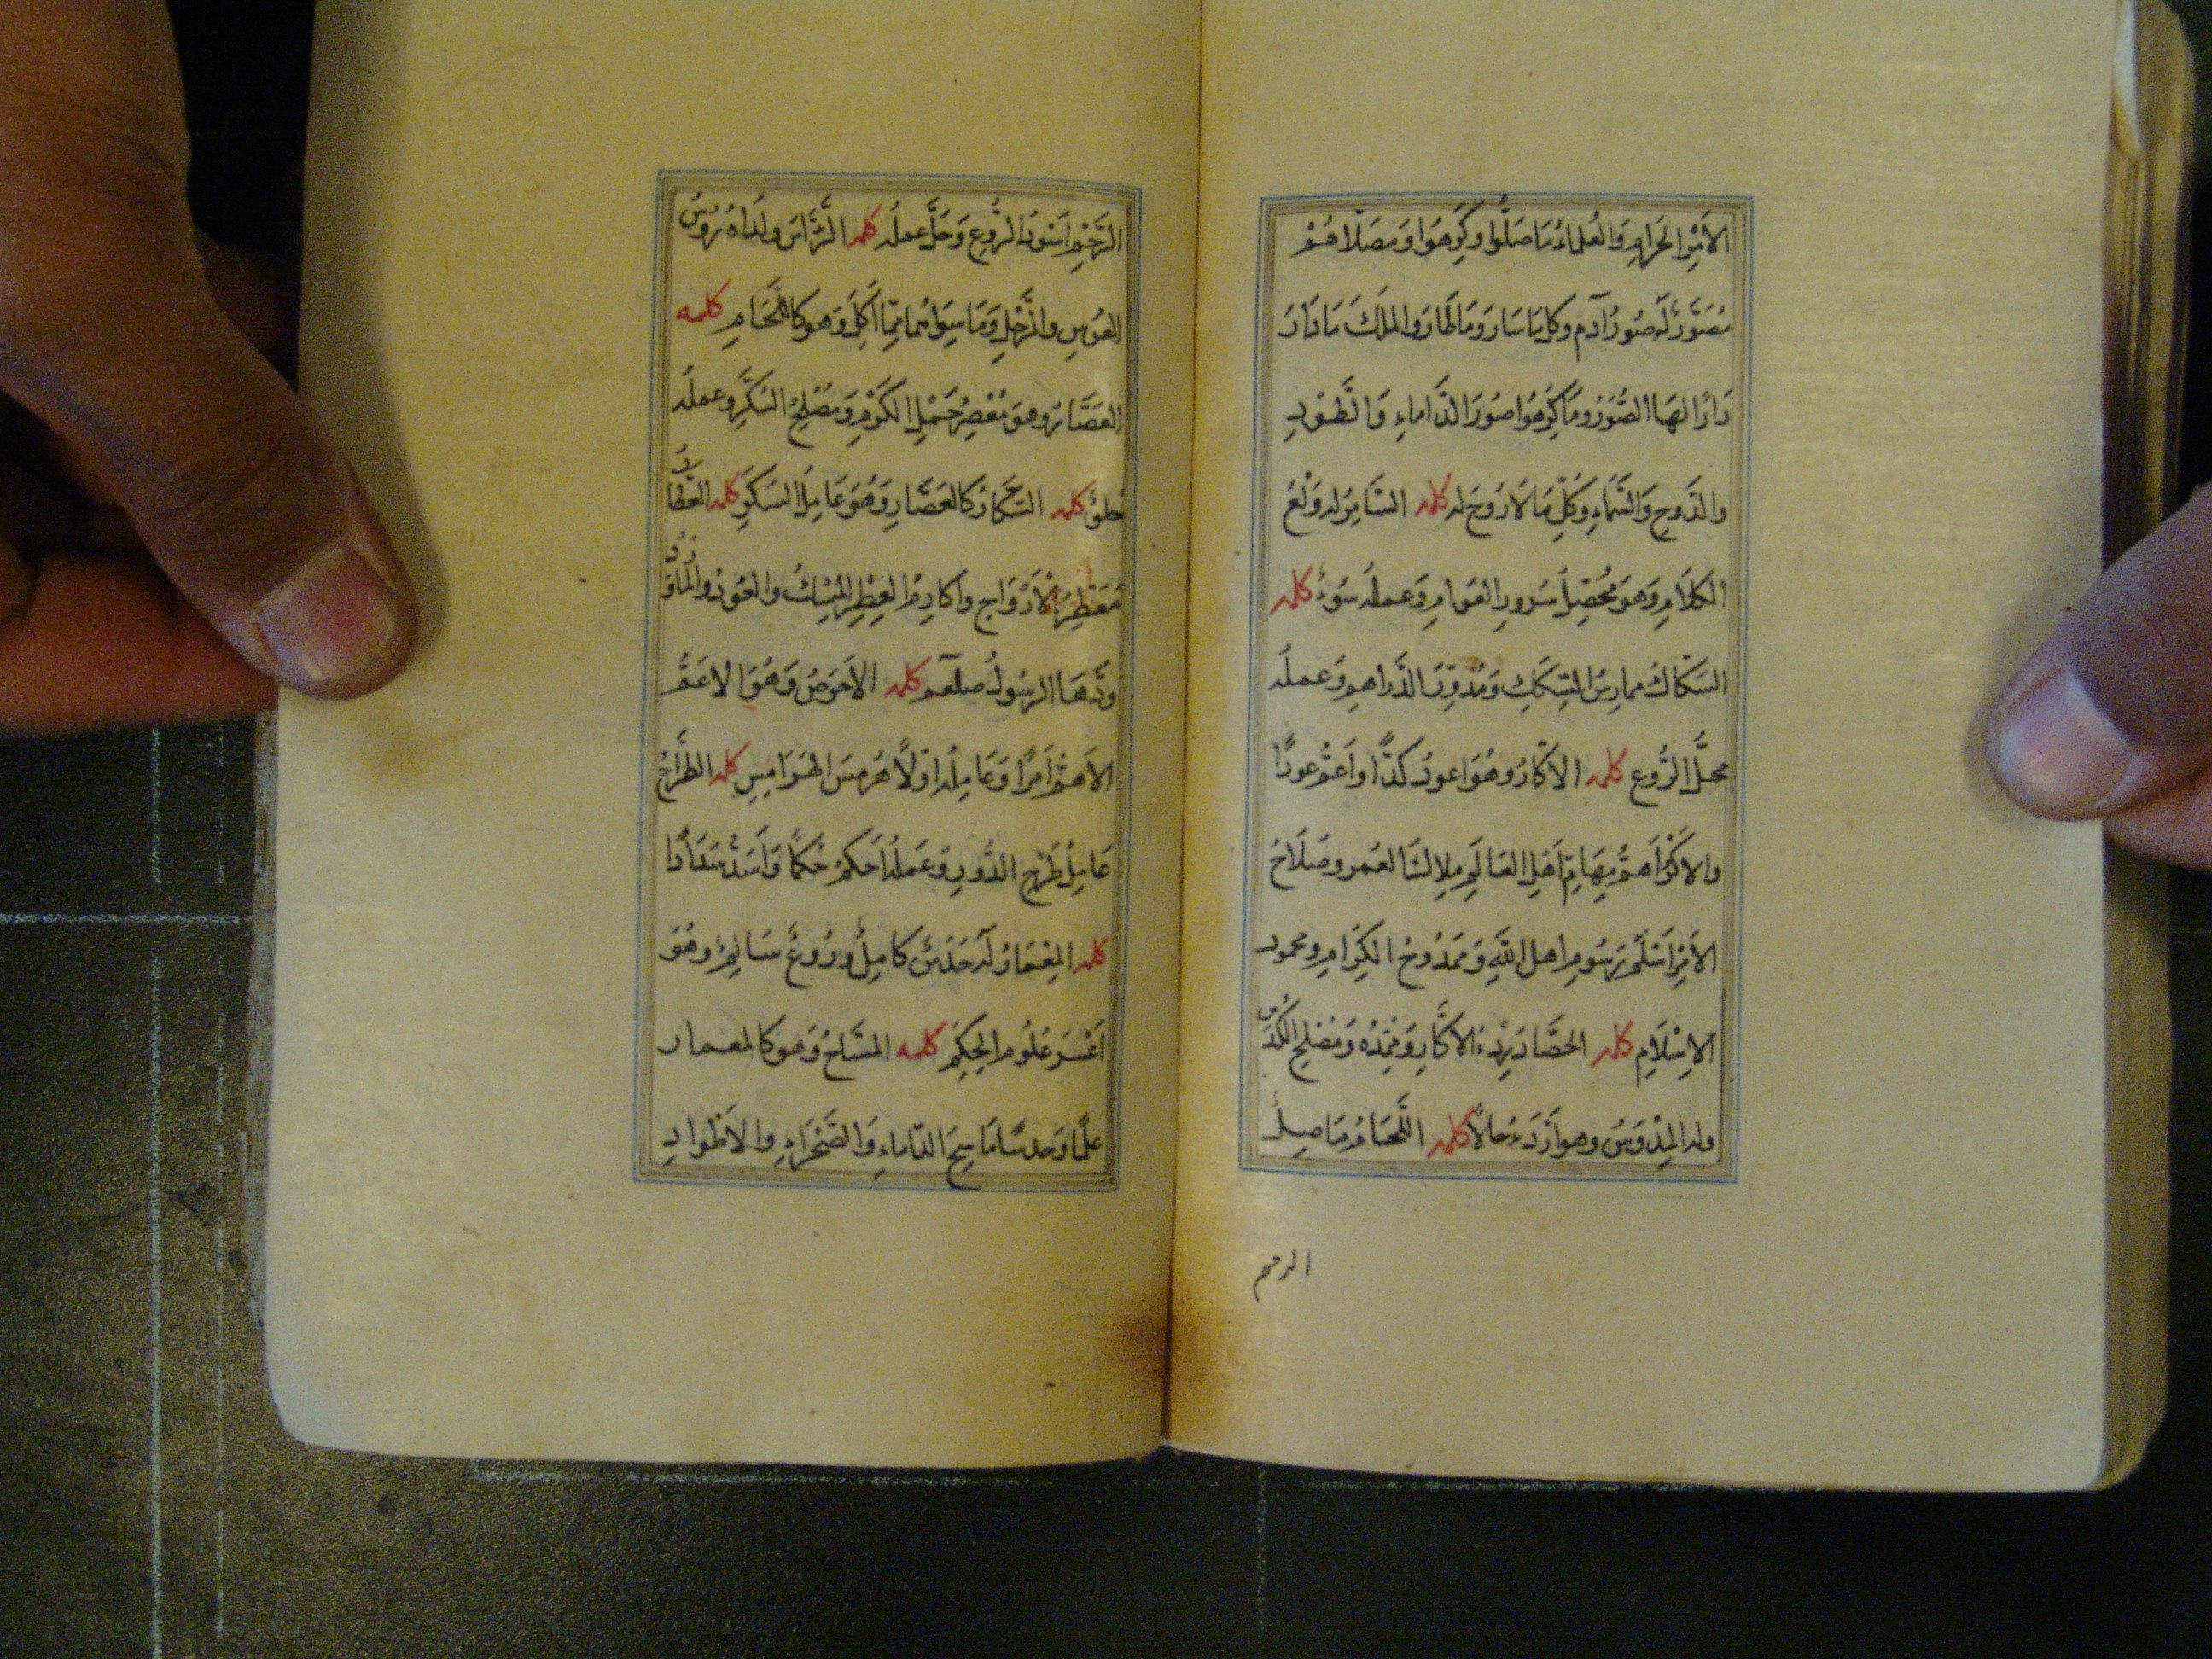 الاَمِرُ الحَرَامِ وَالعُلماءُ مَا صَلُّوا وكَرِهُوا وَمصَلاهُمْ
مُصَوَّرٌ لَه صُورُ آدم وكل مَا سَارَ وَمَا طَارَ والمَلَكَ مَا دَارَ
دَارًا لهَا الصُّوَرُ ومَا كرِهُوا صُورَ الدَّاماءِ وَالطَّوْدِ
والدَّوحِ وَالسَّمَاءِ وَكُلّ مَا لَا رُوحَ له كلمه السَّامِرُ له وَلْعُ
الكلَامِ وَهوَ مُحَصِّلُ سُرورِ العَوامِ وَعمله سُوءٌ كلمه
السَكّاكُ ممارِسُ السِّكَكِ وَمُدوِّرُ الدَّراهمِ وَعمله
محلُّ الرَّوع كلمه الاَكّارُ وهُوَ اعودُ كدًّا واَعَمُّ عودًا
والاكْرُ اَهمُّ مِهَامِّ اَهْلِ العَالَمِ مِلاكُ العُمر وصَلَاحُ
الاَمْرِ اَسْلَمُ رسُومِ اهل اللّهِ وَممَدُوحُ الكِرَامِ ومحمود
الاِسْلَامِ كلمه الحَصَّادُ رِدْءُ الاكَّارِ وَمُمِدُّه وَمُصْلحُ الكُدْسِ
وله المِدْوَسُ وهو اَرْدَءُ حلالًا كلمه اللَّحَامُ مَا صِلُ
الرحم
الرَّحْمِ اَسْوَدُ الرُّوعِ وَحَلَّ عمله كلمه الرَّاّسُ ولدَاهُ رُوُسُ
العُوسِ والرَّخْلِ وَمَا سِوَاهُما مِمَّا اُكِلَ وَهوَ كاللَّحَامِ كلمه
العَصَّارُ وهوَ مُعْصِرُ حَمْلِ الكَرْمِ وَمُصْلِحُ السُكَّرِ وعمله
حُلوٌ كلمه السَكّارُ كالعَصَّارِ وَهُوَ عَامِلُ السَكَرِ كلمه العَطّارُ
مُعَطِّرُ الْاَرْوَاحِ واَكارِمُ العِطْرِ المِسْكُ والعُودُ والمَاوَرْدُ
ودَّهَا الرسُولُ صلعم كلمه الاَحوَصُ وَهُوَ الاعَمُّ
الاَهمُّ اَمرًا وَعَامِلُه اوّلًا هُرمسُ الهَرَامِسِ كلمه الطَّرَّاحُ
عَامِلُ طَرْحِ الدُّورِ وَعَملُه اَحكمُ حُكمًا وَاَسَدُّ سَدَادًا
كلمه المِعْمَارُ لَه حَدْسٌ كامِلٌ ورُوعٌ سَالِمٌ وهُوَ
اَعْسَرُ عُلُومِ الحِكَمِ كلمه المسَّاحُ وَهو كالمعمار
علمًا وَحدسًا مَاسِحُ الدّاماءِ وَالصَّحْرَاءِ والاَطْوادِ